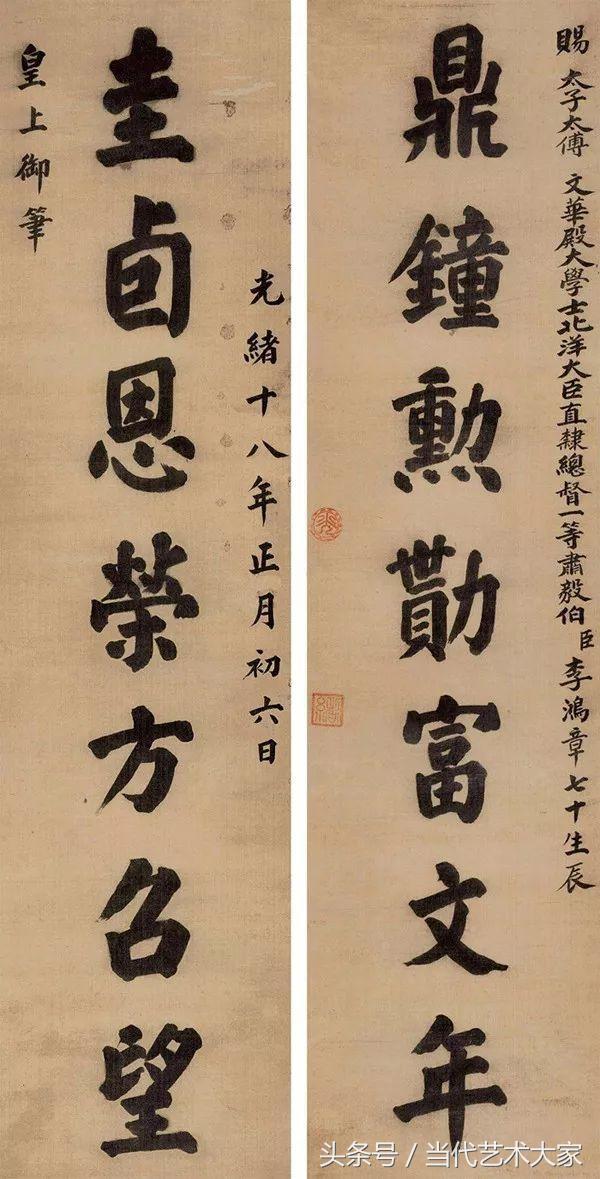 賜 太子太傅 文華殿大學士北洋大臣直隸總督一等肅毅伯 臣 李鴻章七十生辰
鼎鐘勳勩富文年
光緒十八年正月初六日
圭卣恩榮方召望
皇上御筆
头条号 / 当代艺术大家